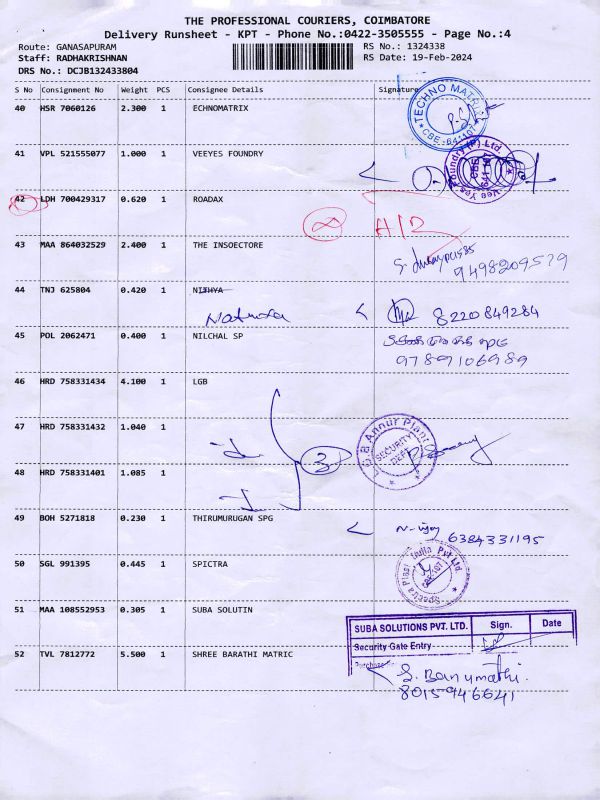 THE PROFESSIONAL COURIERS, COIMBATORE
Delivery Runsheet - KPT - Phone No.:0422-3505555 - Page No.:4
Route: GANASAPURAM RS No.: 1324338
Staff: RADHAKRISHNAN RS Date: 19-Feb-2024
DRS No.: DCJB132433804
S No Consignment No Weight PCS Consignee Details Signature
40 HSR 7060126 2.300 1 ECHNOMATRIX
TECHNO MATRIX CBE-641107
41 VPL 521555077 1.000 1 VEEYES FOUNDRY
Vee Yes Foundry (P) Ltd. CBE 641 107
42 LDH 700429317 0.620 1 ROADAX
43 MAA 864032529 2.400 1 THE INSOECTORE
9498209579
44 TNJ 625804 0.420 1 NITHYA
8220849284
45 POL 2062471 0.400 1 NILCHAL SP
9789106989
46 HRD 758331434 4.100 1 LGB
47 HRD 758331432 1.040 1
3
Annur Plant SECURITY DEPT.
48 HRD 758331401 1.085 1
49 BOH 5271818 0.230 1 THIRUMURUGAN SPG
6384331195
50 SGL 991395 0.445 1 SPICTRA
India Pvt Ltd.
51 MAA 108552953 0.305 1 SUBA SOLUTIN
SUBA SOLUTIONS PVT. LTD. Sign. Date
Security Gate Entry
52 TVL 7812772 5.500 1 SHREE BARATHI MATRIC
S. Banumathi.
8015946641